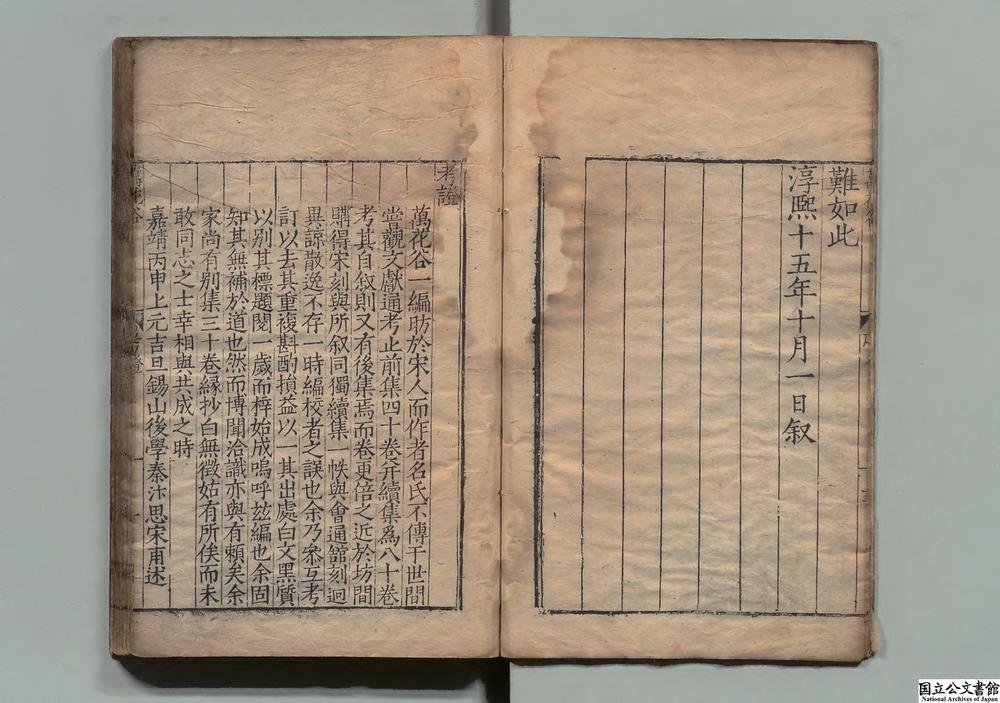 難如此
淳熙十五年十月一日叙
考證
萬花谷一編昉於宋人而作者名氏不傳于世間
嘗觀文獻通考止前集四十卷并續集爲八十卷
考其自叙則又有後集焉而卷更倍之近於坊間
購得宋刻與所叙同獨續集一帙與會通舘刻迥
異諒散逸不存一時編校者之誤也余乃叅互考
訂以去其重複斟酌損益以一其出處白文黑質
以别其標題閱一歲而梓始成嗚呼玆編也余固
知其無補於道也然而博聞洽識亦與有賴矣余
家尚有别集三十卷緣抄白無徵姑有所俟而未
敢同志之士幸相與共成之時
嘉靖丙申上元吉旦錫山後學秦汴思宋甫述
考證
国立公文書館
National Archives of Japan